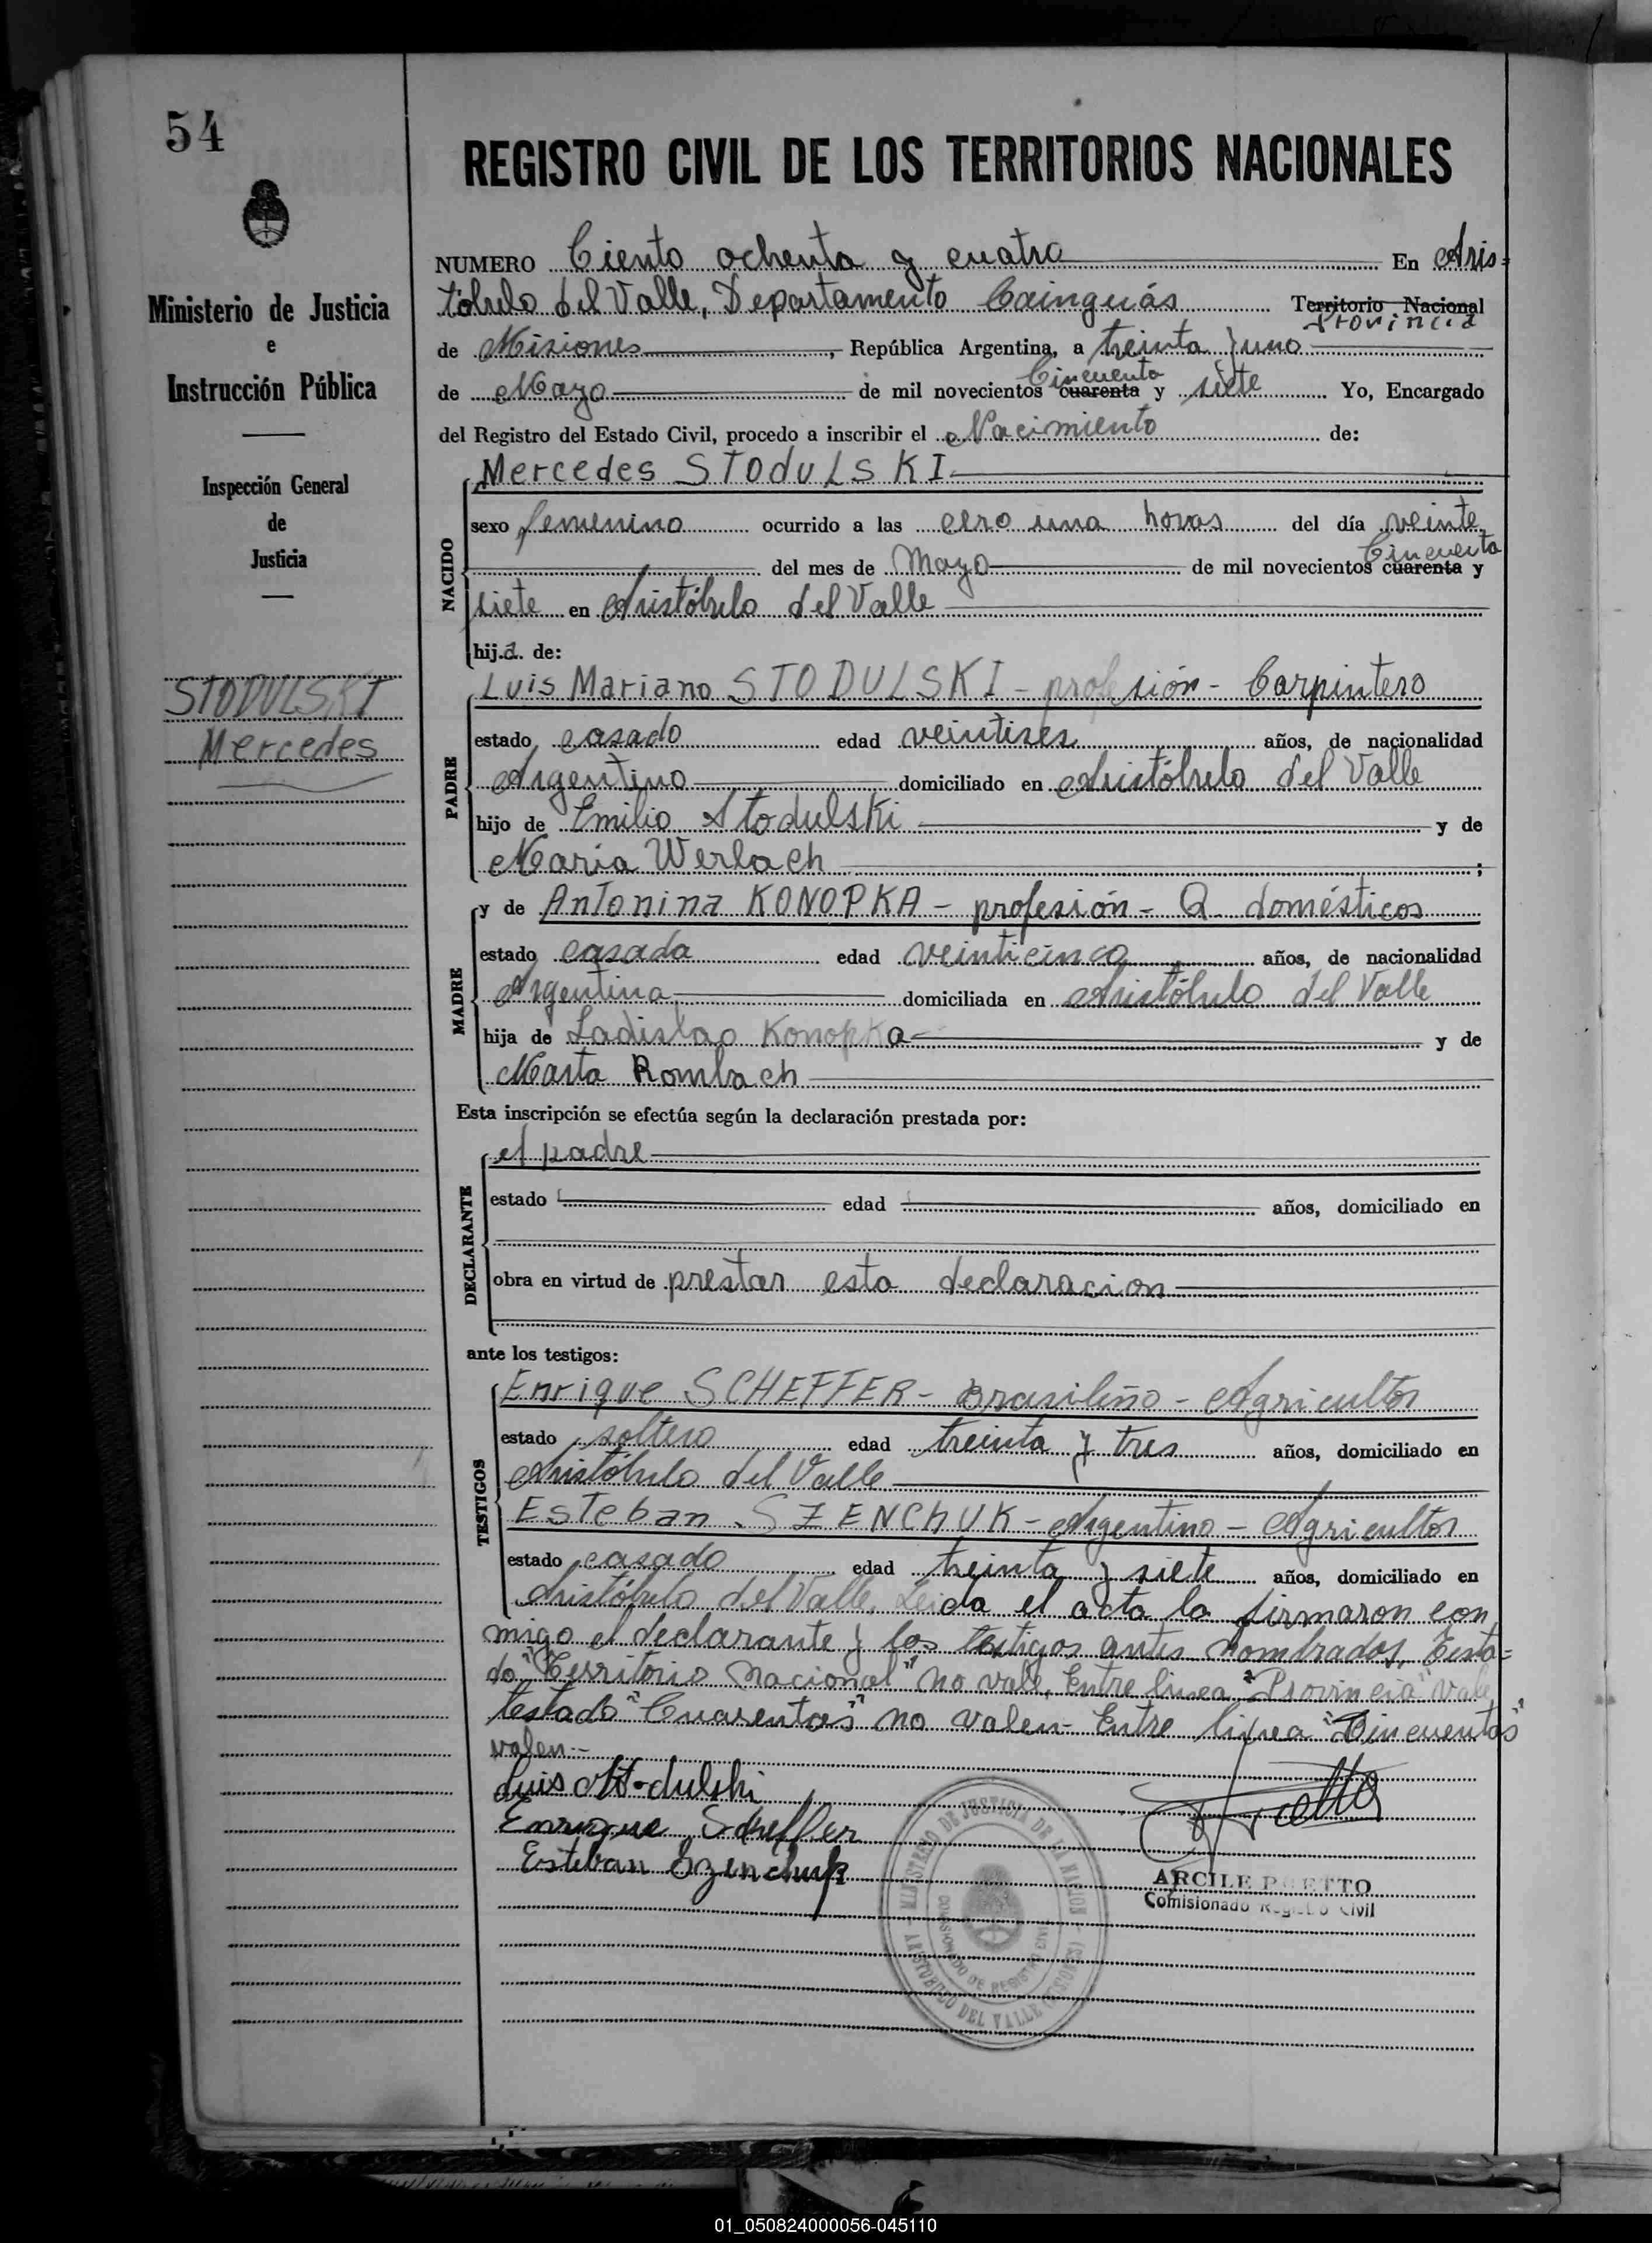 54
Ministerio de Justicia
e
Instrucción Pública
Inspección General
de
Justicia
STODULSKI
Mercedes
REGISTRO CIVIL DE LOS TERRITORIOS NACIONALES
NUMERO Ciento ochenta y cuatro En Aris=
tóbulo del Valle, Departamento Cainguás Territorio Nacional
Provincia
de Misiones, República Argentina, a treinta y uno
Cincuenta
de Mayo de mil novecientos cuarenta y siete Yo, Encargado
del Registro del Estado Civil, procedo a inscribir el Nacimiento de:
Mercedes STODULSKI
NACIDO
sexo femenino ocurrido a las cero una horas del día veinte
Cincuenta
del mes de Mayo de mil novecientos cuarenta y
siete en Aristóbulo del Valle
hij.a. de:
PADRE
Luis Mariano STODULSKI - profesión - Carpintero
estado casado edad veintiseis años, de nacionalidad
Argentino domiciliado en Aristóbulo del Valle
hijo de Emilio Stodulski y de
Maria Werlach ;
MADRE
y de Antonina KONOPKA - profesión - Q. domésticos
estado casada edad veinticinco años, de nacionalidad
Argentina domiciliada en Aristóbulo del Valle
hija de Ladislao Konopka y de
Marta Rombach
Esta inscripción se efectúa según la declaración prestada por:
DECLARANTE
el padre
estado edad años, domiciliado en
obra en virtud de prestar esta declaracion
ante los testigos:
TESTIGOS
Enrique SCHEFFER - Brasileño - Agricultor
estado soltero edad treinta y tres años, domiciliado en
Aristóbulo del Valle
Esteban SZENCHUK - Argentino - Agricultor
estado casado edad treinta y siete años, domiciliado en
Aristóbulo del Valle. Leida el acta la firmaron con
migo el declarante y los testigos antes nombrados. Testa=
do "Territorio Nacional" no vale, Entre linea "Provincia" vale,
testado "Cuarentas" no valen - Entre linea "Cincuentas"
valen -
Luis Stodulski
Enrique Scheffer
Esteban Szenchuk
MINISTERIO DE JUSTICIA DE LA NACION
COMISIONADO DE REGISTRO CIVIL
ARISTOBULO DEL VALLE (MISIONES)
ARCILE
Comisionado Registro Civil
01_050824000056-045110